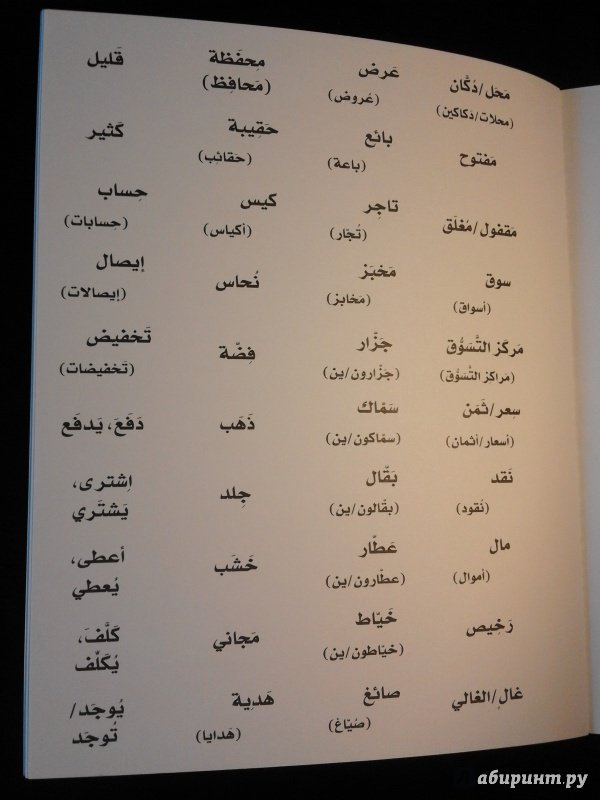 مَحَل/دُكَّان
(محلات/دَكاكين)
مَفتوح
مَقفول/مُغلَق
سوق
(أسواق)
مَركَز التَّسَوُّق
(مَراكَز التَّسَوُّق)
سِعر/ثَمَن
(أسعار/أثمان)
نَقد
(نُقود)
مال
(أموال)
رَخيص
غالِ/الغالي
عَرض
(عَروض)
بائع
(باعة)
تاجِر
(تُجّار)
مَخبَز
(مَخابز)
جَزّار
(جَزّارون/ين)
سَمّاك
(سمّاكون/ين)
بَقّال
(بقّالون/ين)
عَطّار
(عطّارون/ين)
خَيّاط
(خيّاطون/ين)
صائغ
(صُيّاغ)
مِحفَظة
(مَحافِظ)
حَقيبة
(حقائب)
كيس
(أكياس)
نُحاس
فِضّة
ذَهَب
جِلد
خَشَب
مَجاني
هَدِية
(هَدايا)
قَليل
كَثير
حِساب
(حِسابات)
إيصال
(إيصالات)
تَخفيض
(تَخفيضات)
دَفَعَ، يَدفَع
اِشترى،
يَشتَري
أعطى،
يُعطي
كَلَّفَ،
يُكَلِّف
يُوجَد/
تُوجَد
абиринт.ру